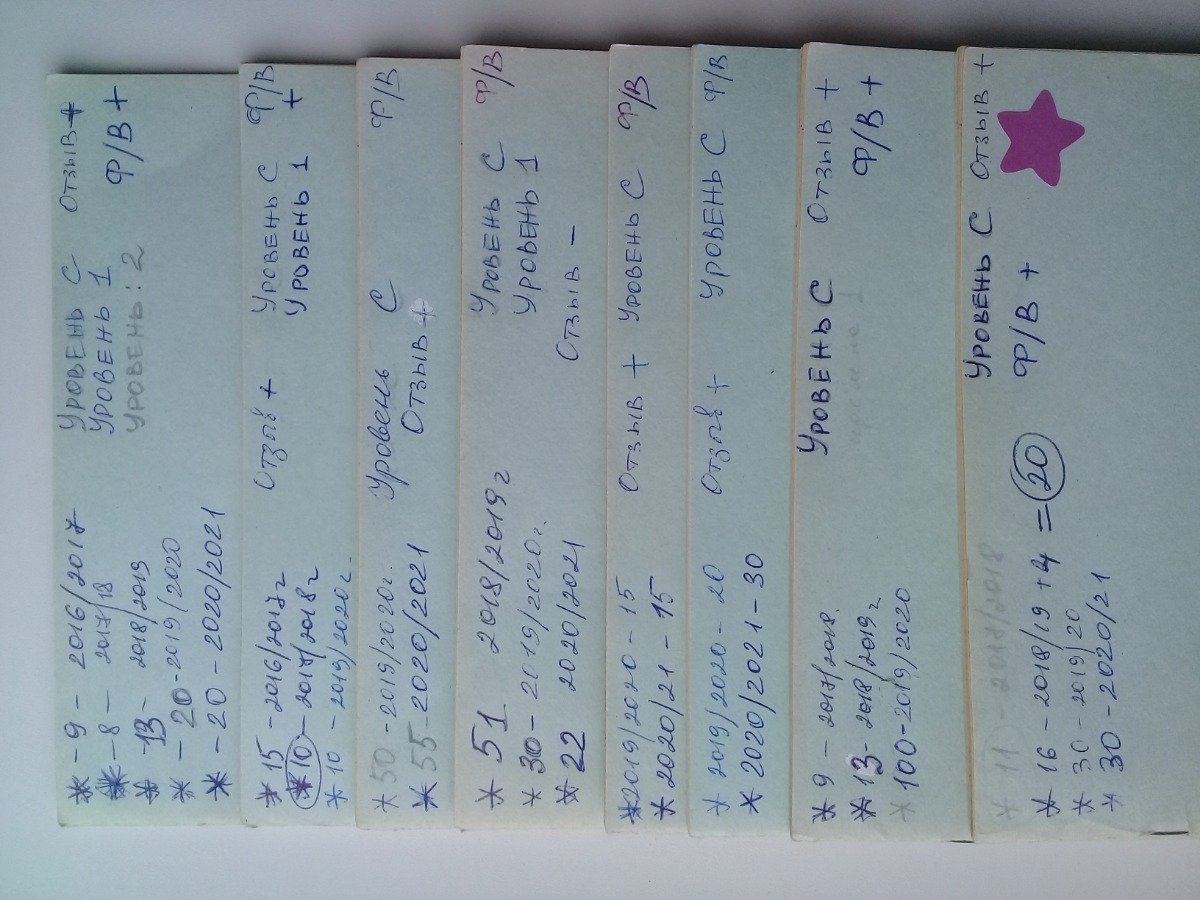 * - 9 - 2016/2017 Уровень С Отзыв +
* - 8 - 2017/18 Уровень 1 Ф/В +
* - 13 - 2018/2019 Уровень: 2
* - 20 - 2019/2020
* - 20 - 2020/2021
* 15 - 2016/2017г Отзыв + Уровень С Ф/В
* 10 - 2017/2018г Уровень 1 +
* 10 - 2019/2020г.
* 50 - 2019/2020г. Уровень С Ф/В
* 55 - 2020/2021 Отзыв +
* 51 2018/2019г Уровень С Ф/В
* 30 - 2019/2020г. Уровень 1
* 22 2020/2021 Отзыв -
* 2019/2020 - 15 Отзыв + Уровень С Ф/В
* 2020/21 - 15
* 2019/2020 - 20 Отзыв + Уровень С Ф/В
* 2020/2021 - 30
* 9 - 2017/2018. Уровень С Отзыв +
* 13 - 2018/2019г Ф/В +
* 100 - 2019/2020
* 11 - 2017/2018 Уровень С Отзыв +
* 16 - 2018/19 + 4 = 20 Ф/В +
* 30 - 2019/20
* 30 - 2020/21